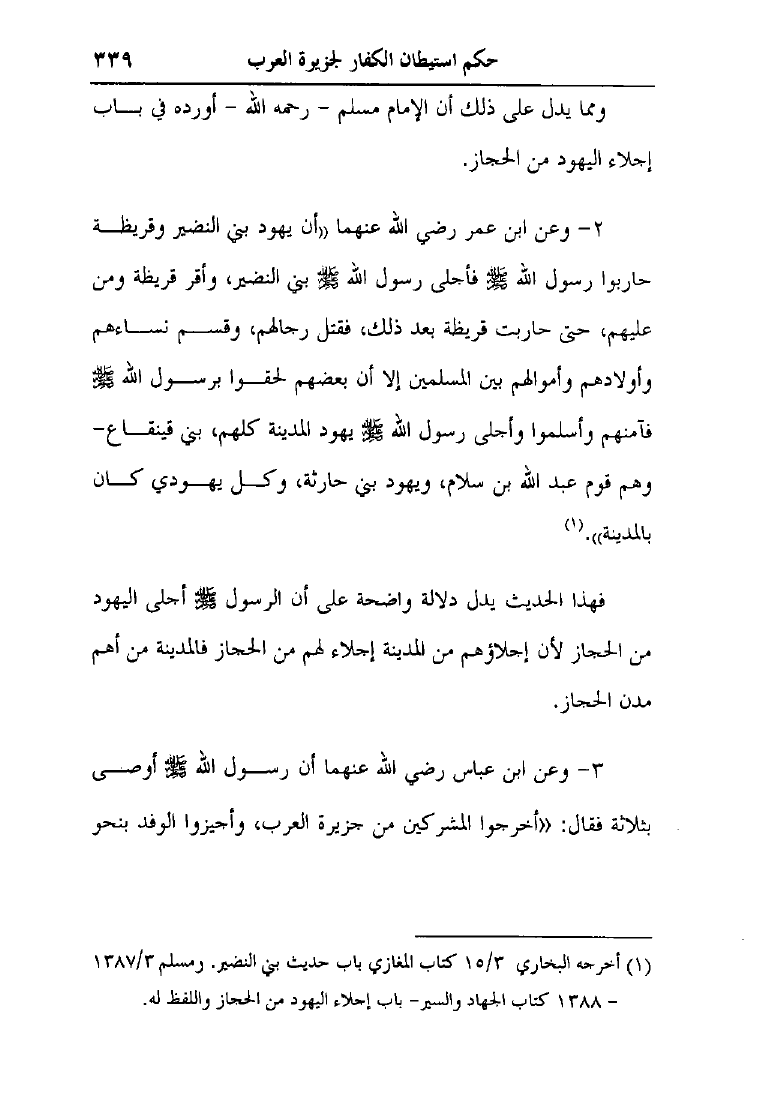 حكم استيطان الكفار لجزيرة العرب ٣٣٩
ومما يدل على ذلك أن الإمام مسلم – رحمه الله – أورده في باب
إجلاء اليهود من الحجاز.
٢- وعن ابن عمر رضي الله عنهما ((أن يهود بني النضير وقريظة
حاربوا رسول الله ﷺ فأجلى رسول الله ﷺ بني النضير، وأقر قريظة ومن
عليهم، حتى حاربت قريظة بعد ذلك، فقتل رجالهم، وقسم نساءهم
وأولادهم وأموالهم بين المسلمين إلا أن بعضهم لحقوا برسول الله ﷺ
فآمنهم وأسلموا وأجلى رسول الله ﷺ يهود المدينة كلهم، بني قينقاع-
وهم قوم عبد الله بن سلام، ويهود بني حارثة، وكل يهودي كان
بالمدينة)).(١)
فهذا الحديث يدل دلالة واضحة على أن الرسول ﷺ أجلى اليهود
من الحجاز لأن إجلاؤهم من المدينة إجلاء لهم من الحجاز فالمدينة من أهم
مدن الحجاز.
٣- وعن ابن عباس رضي الله عنهما أن رسول الله ﷺ أوصى
بثلاثة فقال: ((أخرجوا المشركين من جزيرة العرب، وأجيزوا الوفد بنحو
(١) أخرجه البخاري ١٥/٣ كتاب المغازي باب حديث بني النضير. ومسلم ١٣٨٧/٣
– ١٣٨٨ كتاب الجهاد والسير- باب إجلاء اليهود من الحجاز واللفظ له.